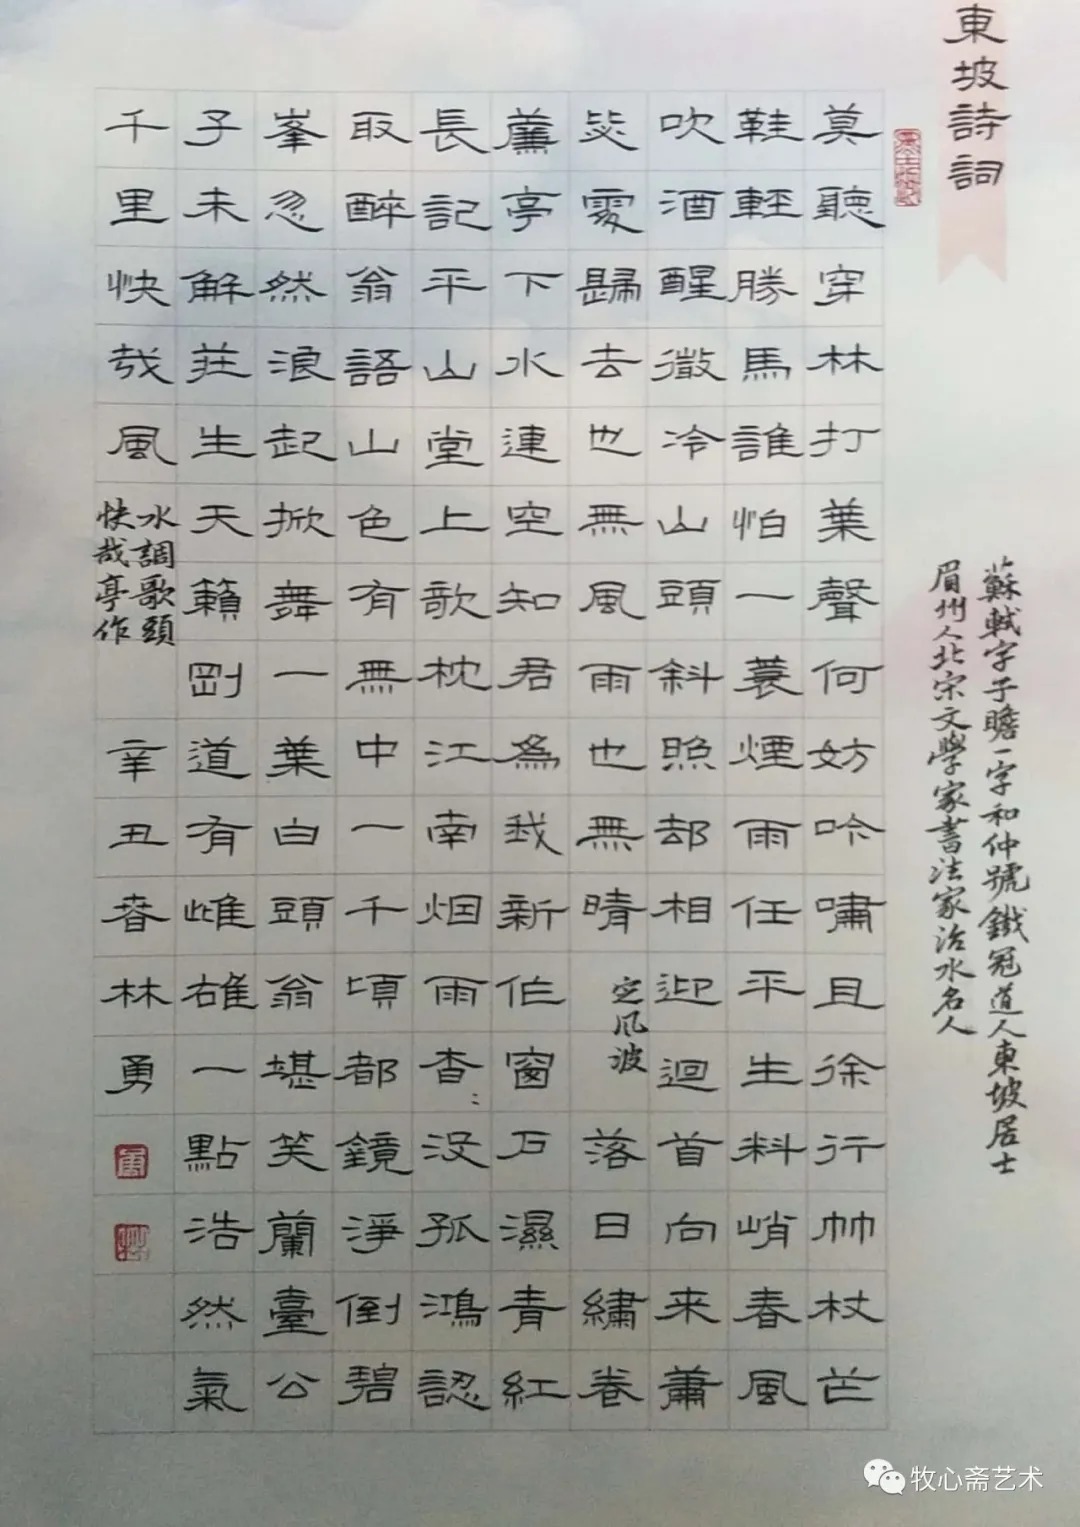 東坡詩詞
蘇軾字子瞻一字和仲號鐵冠道人東坡居士
眉州人北宋文學家書法家治水名人
莫聽穿林打葉聲何妨吟嘯且徐行竹杖芒
鞋輕勝馬誰怕一蓑煙雨任平生料峭春風
吹酒醒微冷山頭斜照却相迎迴首向来蕭
瑟處歸去也無風雨也無晴 定風波 落日繡卷
簾亭下水連空知君為我新作窗戶濕青紅
長記平山堂上歌枕江南烟雨杳々没孤鴻認
取醉翁語山色有無中一千頃都鏡淨倒碧
峯忽然浪起掀舞一葉白頭翁堪笑蘭臺公
子未解莊生天籟剛道有雌雄一點浩然氣
千里快哉風
水調歌頭
快哉亭作
辛丑春林勇
牧心斋艺术